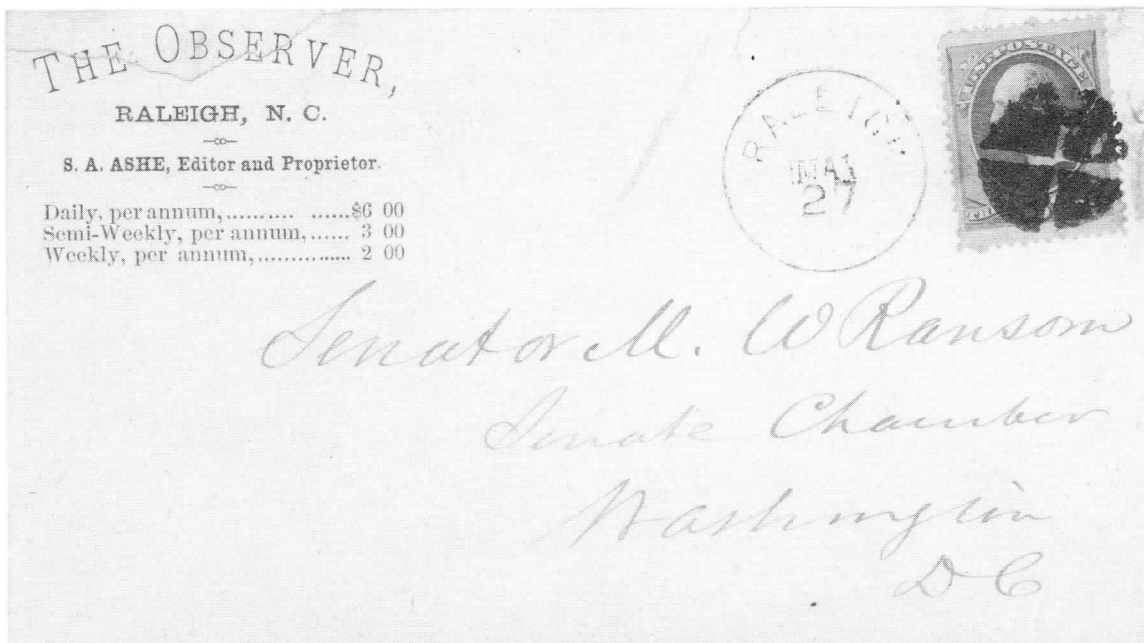 THE OBSERVER,
RALEIGH, N. C.
S. A. ASHE, Editor and Proprietor.
Daily, per annum,.......... ......$6 00
Semi-Weekly, per annum,...... 3 00
Weekly, per annum,............... 2 00
RALEIGH
MAR
27
U.S. POSTAGE
Senator M. W Ransom
Senate Chamber
Washington
D C